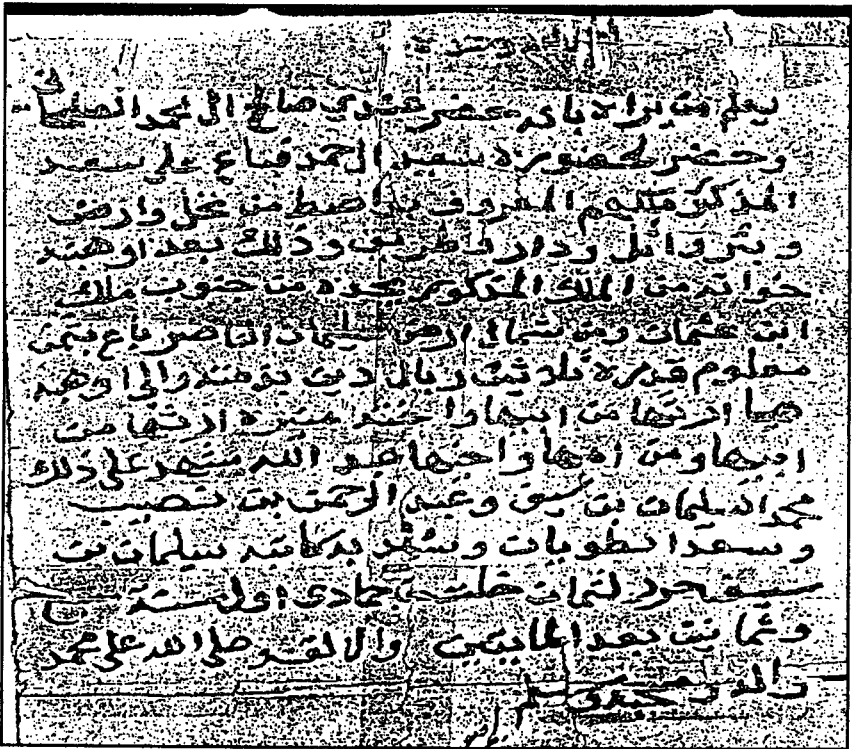 يعلم من يراه بانه حضر عندي صالح ال محمد الصليمان
وحضر لحضوره سعيد ال حمد فباع علي سعيد
المذكور ملكهم المعروف بـ من نخل وارض
وبئر واثل ودار وطريق وذلك بعد اوهبته
خواته من الملك المذكور يحده من جنوب ملك
ابن عثمان ومن شمال ارض سليمان الناصر باع بثمن
معلوم قدره ثلاثين ريال دين بذمته والى اوهبه
هيا ارثها من ابيها واخته منيره ارثها من
ابيها ومن امها واختها عبد الله شهد على ذلك
محمد السليمان بن وعبد الرحمن بن
وسعد وشهد به كاتبه سليمان بن
حرر لثمان خلت جمادى اول سنة
وثمانين بعد المايتين والالف وصلى الله على محمد
واله وصحبه وسلم